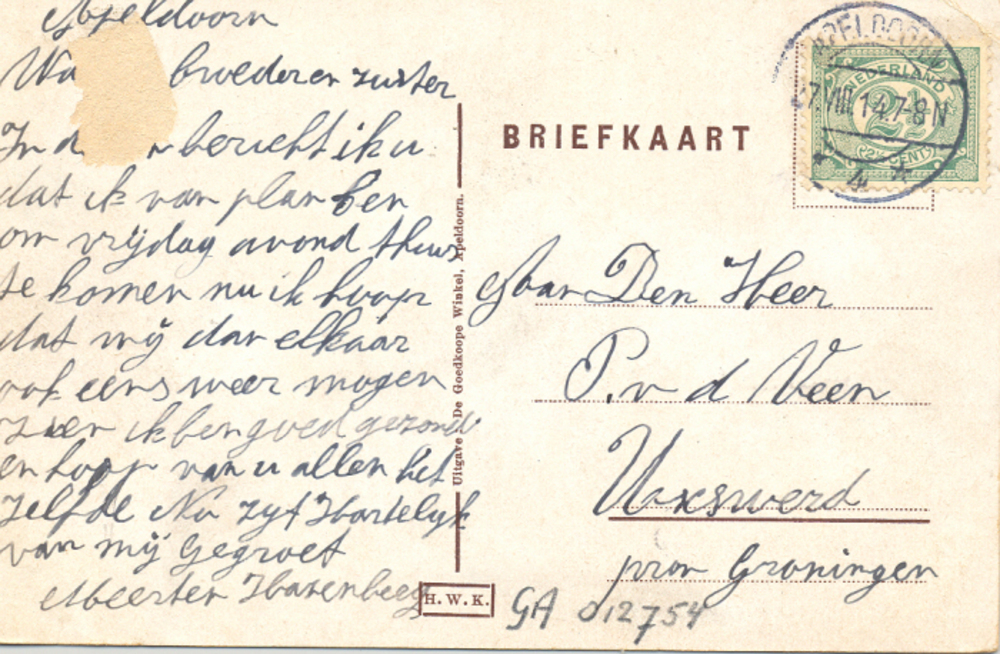 Apeldoorn
Wa broeder en zuster
In d bericht ik u
dat ik van plan ben
om vrijdag avond thuis
te komen nu ik hoop
dat wij dan elkaar
ook eens weer mogen
zien ik ben goed gezond
en hoop van u allen het
zelfde Nu zyt Hartelyk
van mij Gegroet
Meerten Harenberg
Uitgave De Goedkoope Winkel, Apeldoorn.
H.W.K.
BRIEFKAART
APELDOORN
7.VIII.14.7-8N
4
NEDERLAND
2½
(2½ CENT)
Aan Den Heer
P. v d Veen
Usswerd
prov Groningen
GA 012754